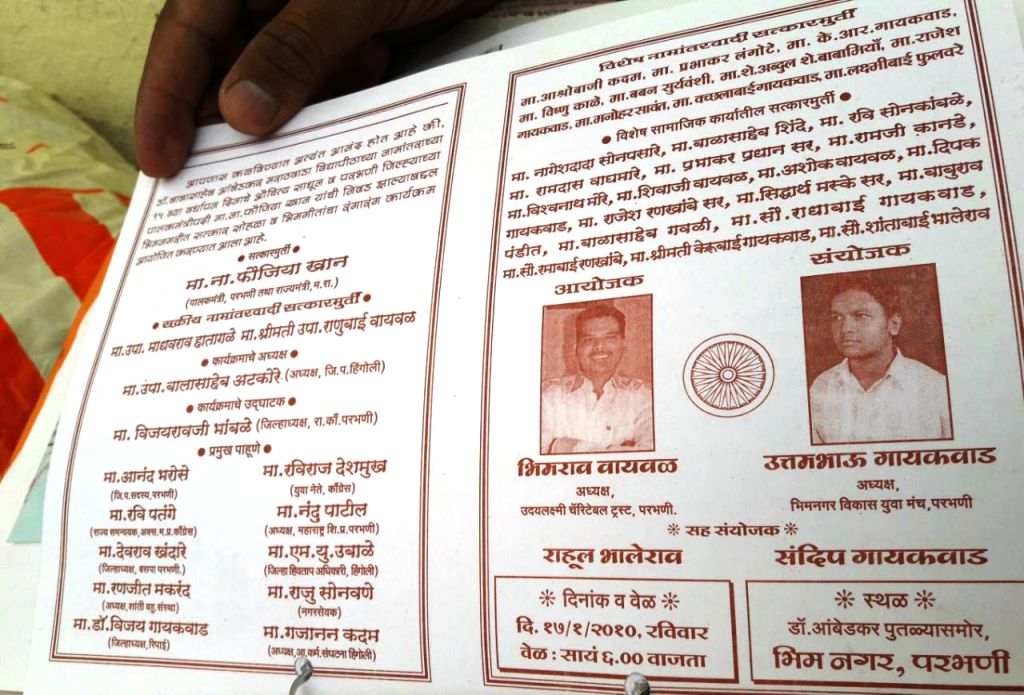 आपणास कळविण्यात अत्यंत आनंद होत आहे की,
डॉ.बाबासाहेब आंबेडकर मराठवाडा विद्यापीठाच्या नामांतराच्या
१५ व्या वर्धापन दिनाचे औचित्य साधून व परभणी जिल्ह्याच्या
पालकमंत्रीपदी मा.ना.फौजिया खान यांची निवड झाल्याबद्दल
भिमनगरीत सत्कार सोहळा व भिमगीतांचा रंगारंग कार्यक्रम
आयोजित करण्यात आला आहे.
● सत्कारमुर्ती ●
मा.ना.फौजिया खान
(पालकमंत्री, परभणी तथा राज्यमंत्री, म.रा.)
● सक्रीय नामांतरवादी सत्कारमुर्ती ●
मा.उपा. माधवराव हातागळे मा.श्रीमती उपा.राणुबाई वायवळ
● कार्यक्रमाचे अध्यक्ष ●
मा.उपा.बालासाहेब अटकोरे (अध्यक्ष, जि.प.हिंगोली)
● कार्यक्रमाचे उद्घाटक ●
मा. विजयरावजी भांबळे (जिल्हाध्यक्ष, रा.काँ.परभणी)
● प्रमुख पाहूणे ●
मा.आनंद भरोसे
(जि.प.सदस्य, परभणी)
मा.रवि पतंगे
(राज्य समन्वयक, अक्स.म.प्र.काँग्रेस)
मा.देवराव खंदारे
(जिल्हाध्यक्ष, बसपा परभणी.)
मा.रणजीत मकरंद
(अध्यक्ष, शांती बहु.संस्था)
मा.डॉ.विजय गायकवाड
(जिल्हाध्यक्ष, रिपाई)
मा.रविराज देशमुख
(युवा नेते, काँग्रेस)
मा.नंदु पाटील
(अध्यक्ष, महाराष्ट्र शि.प्र.परभणी)
मा.एम.यू.उबाळे
(जिल्हा हिवताप अधिकारी, हिंगोली)
मा.राजु सोनवणे
(नगरसेवक)
मा.गजानन कदम
(अध्यक्ष, आ.कर्म.संघटना हिंगोली)
विशेष नामांतरवादी सत्कारमुर्ती
मा.आश्रोबाजी कदम, मा. प्रभाकर लंगोटे, मा. के.आर.गायकवाड,
मा. विष्णु काळे, मा.बबन सुर्यवंशी, मा.शे.अब्दुल शे.बाबामियाँ, मा.राजेश
गायकवाड, मा.मनोहर सावंत, मा.वच्छलाबाई गायकवाड, मा.लक्ष्मीबाई फुलवरे
● विशेष सामाजिक कार्यातील सत्कारमुर्ती ●
मा. नागेशदादा सोनपसारे, मा.बाळासाहेब शिंदे, मा. रवि सोनकांबळे,
मा. रामदास वाघमारे, मा. प्रभाकर प्रधान सर, मा.रामजी कानडे,
मा.विश्वनाथ मोरे, मा.शिवाजी वायवळ, मा.अशोक वायवळ, मा.दिपक
गायकवाड, मा. राजेश रणखांबे सर, मा.सिद्धार्थ मस्के सर, मा.बाबुराव
पंडीत, मा.बाळासाहेब गवळी, मा.सौ.राधाबाई गायकवाड,
मा.सौ.रमाबाई रणखांबे, मा.श्रीमती केरूबाई गायकवाड, मा.सौ.शांताबाई भालेराव
आयोजक
भिमराव वायवळ
अध्यक्ष,
उदयलक्ष्मी चॅरिटेबल ट्रस्ट, परभणी.
संयोजक
उत्तमभाऊ गायकवाड
अध्यक्ष,
भिमनगर विकास युवा मंच, परभणी
❊ सह संयोजक ❊
राहूल भालेराव
संदिप गायकवाड
❊ दिनांक व वेळ ❊
दि. १७/१/२०१०, रविवार
वेळ : सायं ६.०० वाजता
❊ स्थळ ❊
डॉ.आंबेडकर पुतळ्यासमोर,
भिम नगर, परभणी